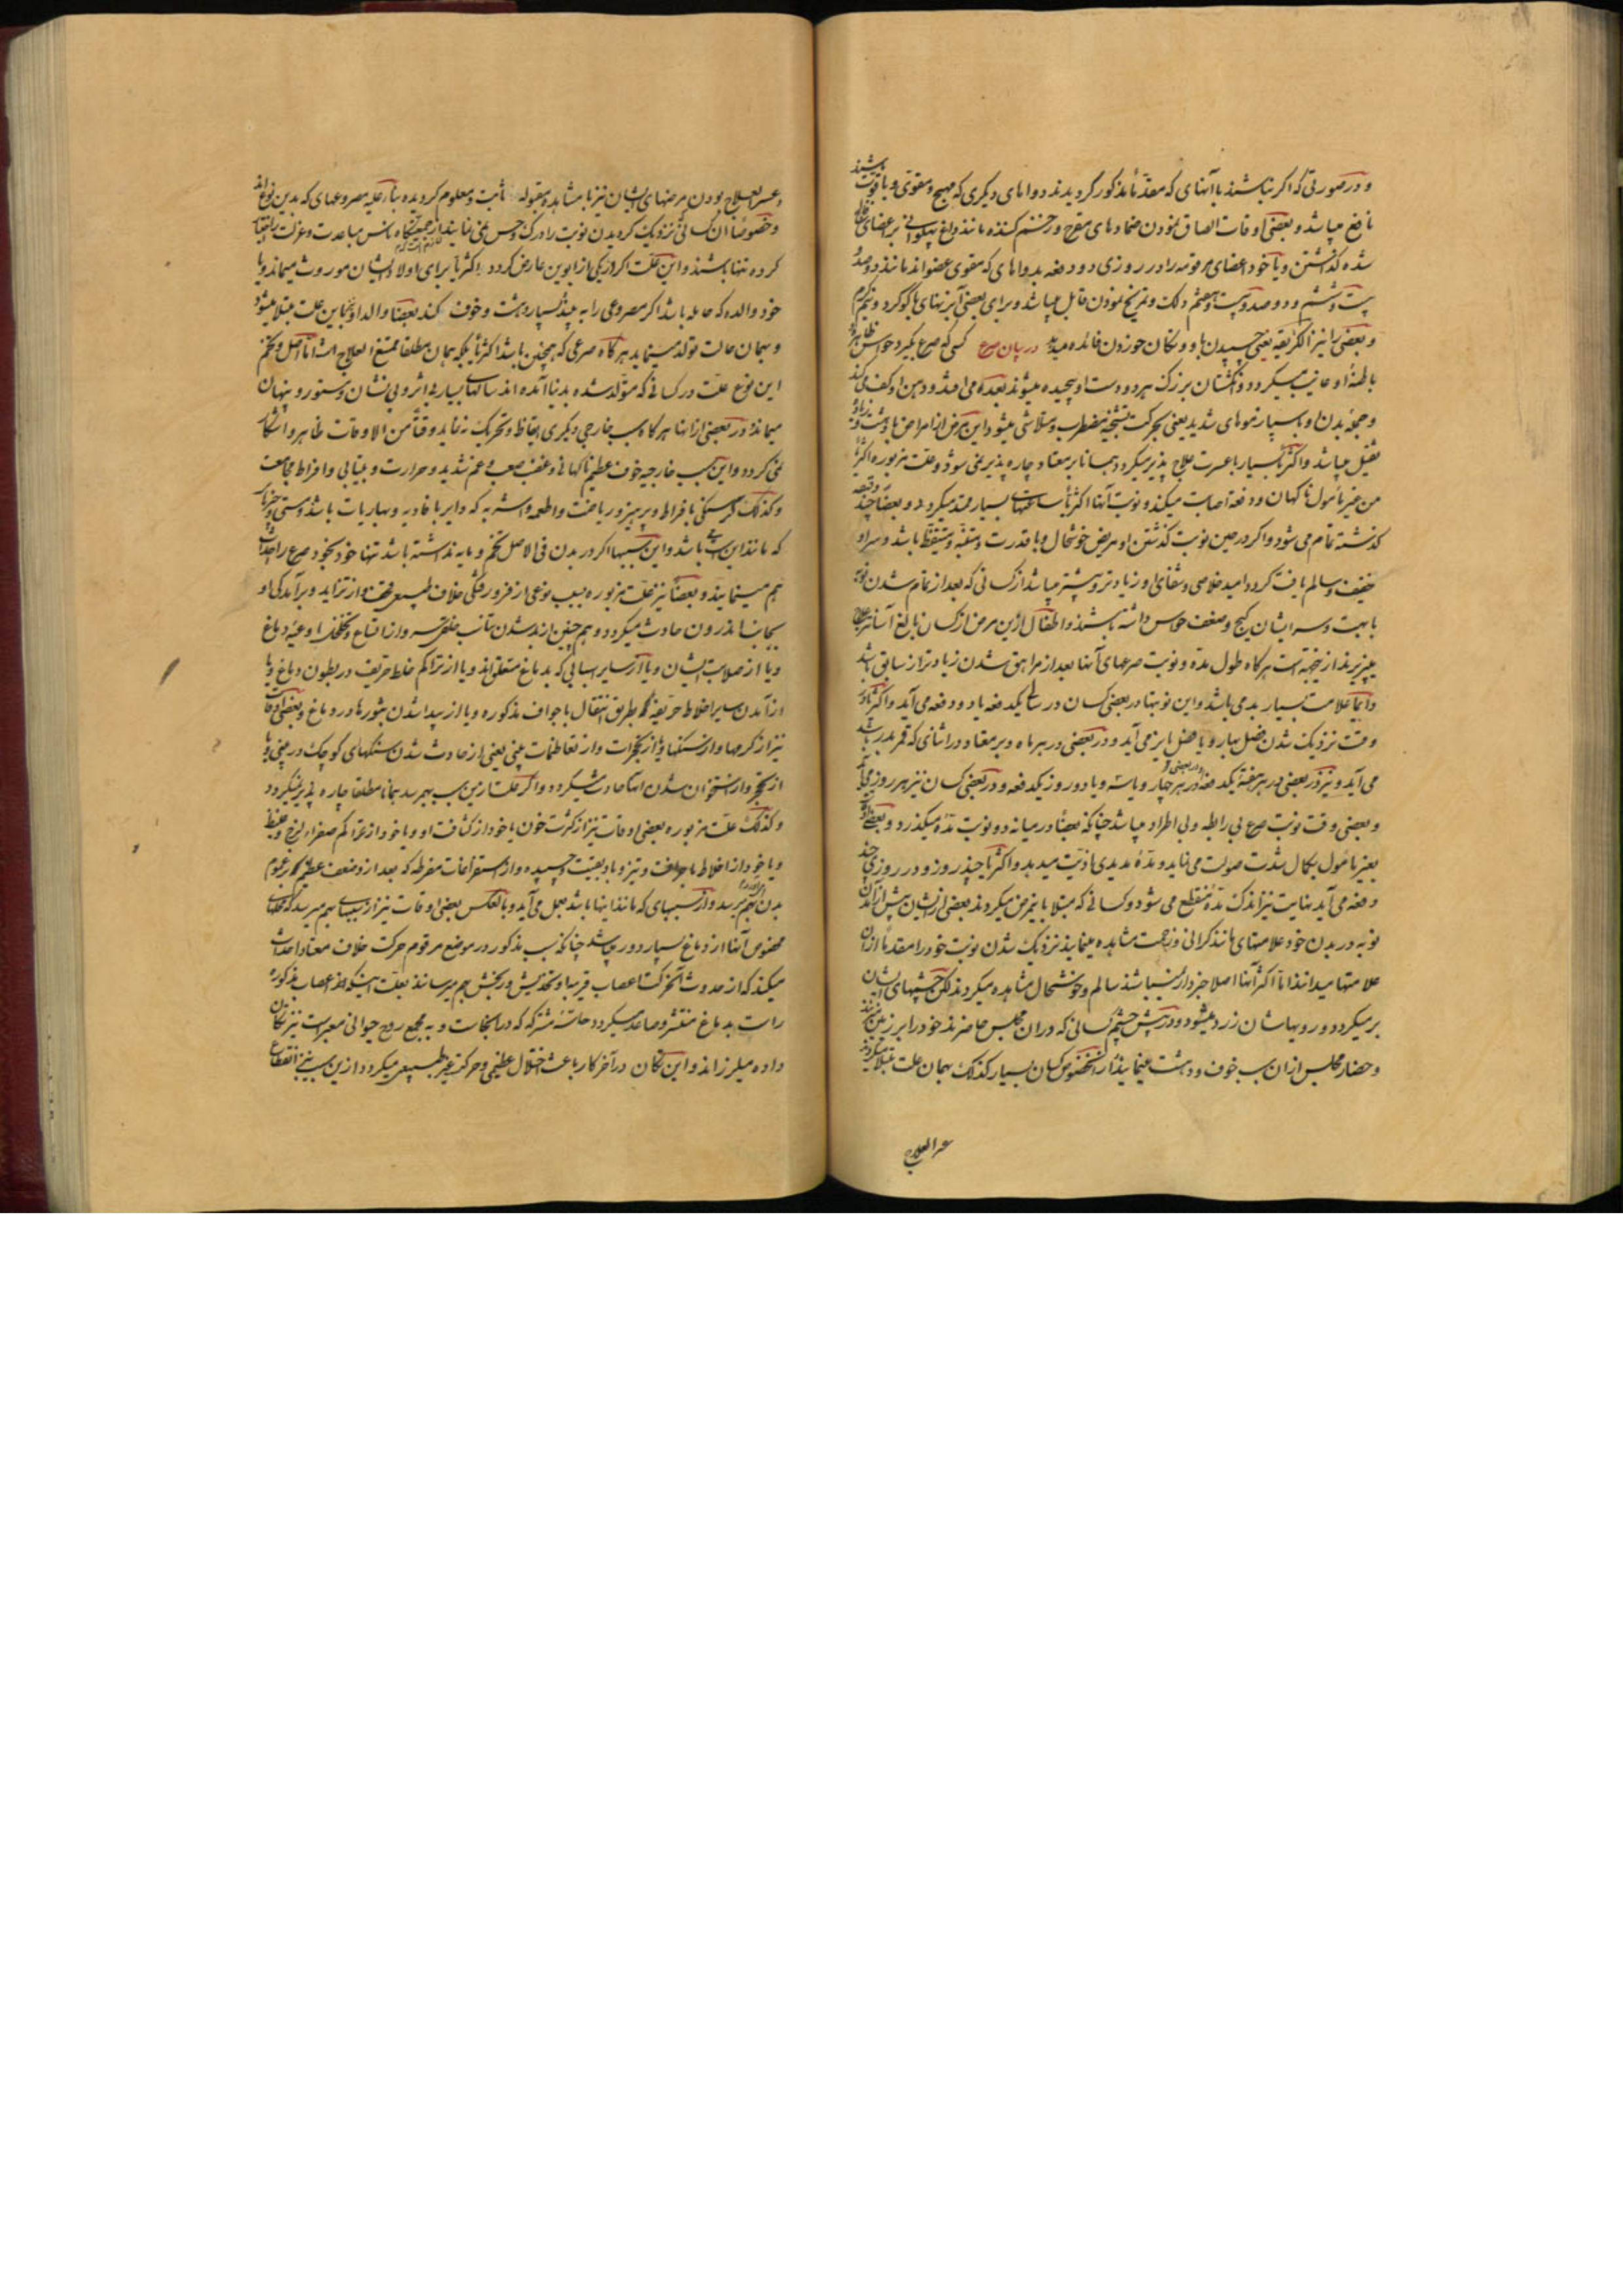 و در صورتی که اکر نباشند با آنهای که مقدّماً مذکور کردیدند دواهای دیکری که مهیج و مقوی و با قوت باشند
نافع میباشد و بعضی اوقات الصاق نمودن ضمادهای مقرح و زخم کننده مانند داغ پهلوانی بر اعضای
شده کذاشتن و یا خود اعضای مرقومه را در روزی دو دفعه بدواهای که مقوی عضواند مانند دو صد
بیست و ششم و دو صد و بیست و هفتم دلک و تمریخ نمودن قابل میباشد و برای بعضی آبزنهای با کوکرد و نیم کرم
و بعضی را نیز الکتریقه یعنی چسپیدن باو و تکان خوردن فائده میدهد در بیان صرع کسی که صرع بکیرد حواس ظاهر و
باطنهٔ او غایب میکردد و انکشتان بزرک هر دو دست او پیچیده میشوند بعده می افتد و دهن او کف می کند
و جمیع بدن او بسیار نموهای شدید یعنی بحرکت تشنجیه مضطرب و متلاشی میشود این مرض از امراض با دهشت و
ثقیل میباشد و اکثریا بسیار با عسرت علاج پذیر میکردد همانا بر معتاد چاره پذیر نمی شود و علت مزبوره اکثریا
من غیر مأمول ناکهان و دفعة اصابت میکند و نوبت آنها اکثریا ساعتهای بسیار ممتد میکردد و بعضا چند دقیقه
کذشته تمام می شود و اکر در حین نوبت کذشتن او مریض خوشحال و با قدرت و متنبّه و متیقّظ باشد و سر او
خفیف و سالم یافت کردد امید خلاصی و شفای او زیادتر و بیشتر میباشد از کسانی که بعد از تمام شدن نوبه
با بهت و سر ایشان کیج و ضعف حواس داشته باشند و اطفال ازین مرض از کسان بالغ آسانتر علاج
پذیرند از خیته است هرکاه طول مدّه و نوبت صرعهای آنها بعد از مراهق شدن زیادتر از سابق باشد
دائما علامت بسیار بد می باشد و این نوبتها در بعضی کسان در سالی یکدفعه یا دو دفعه می آید و اکثریا در
وقت نزدیک شدن فصل بهار و یا فصل پایز می آید و در بعضی در هر ماه و بر معتاد در اثنای که قمر بدر باشد
می آید و نیز در بعضی در هر هفته یکدفعه و در بعضی در هر چهار و یا سه و یا دو روز یکدفعه و در بعضی کسان نیز هر روز می آید
و بعضی وقت نوبت صرع بی رابطه و بی اطراد میباشد چنانکه بعضا در میانه دو نوبت مدّه میکذرد و بعضی
بغیر مأمول بکمال شدت صولت می نماید و مدّهٔ مدیدی اذیت میدهد و اکثریا چند روز و در روزی چند
دفعه می آید بنهایت نیز اندک مدّه منقطع می شود و کسانی که مبتلا باینمرض میکردند بعضی از ایشان پیش از آمدن
نوبه در بدن خود علامتهای مانند کرانی و زحمت مشاهده مینمایند نزدیک شدن نوبت خود را مقدما از آن
علامتها میدانند امّا اکثر آنها اصلا خبردار نمیباشند سالم و خوشحال مشاهده میکردند لکن چشمهای ایشان
بر میکردد و رویهاشان زرد میشود و در پیش چشم کسانی که در آن مجلس حاضرند خود را بر زمین میزنند
و حضار مجلس از ان سبب خوف و دهشت مینمایند از این خصوص کسان بسیار کذلک بهمان علت مبتلا میکردند
عسر العلاج
و عسر العلاج بودن مرضهای ایشان نیز با مشاهده مقبوله ثابت و معلوم کردیده بناءً علیه مصروعهای که بدین نوع‌اند
و خصوصا آن کسانی نزدیک کردیدن نوبت را درک و حس نمی نمایند از جمعیتکاه ناس مباعدت و عزلت را اختیار
کرده تنها باشند و این علت اکر در یکی از ابوین عارض کردد اکثریا برای اولاد ایشان موروث میماند و یا
خود والده که حامله باشد اکر مصروعی را به بیند بسیار دهشت و خوف کند بعضا والد او نیز باین علت مبتلا میشود
و بهمان حالت تولد مینماید هرکاه صرعی که همچنین باشد اکثریا بلکه همان مطلقا ممتنع العلاج است امّا اصل و تخم
این نوع علّت در کسانی که متولّد شده بدنیا آمده اند سالهای بسیار بی اثر و بی نشان و مستور و پنهان
میماند و در بعضی از آنها هرکاه سبب خارجی دیکری ایقاظ و تحریک ننماید وقتا من الاوقات ظاهر و آشکار
نمی کردد و این سبب خارجیه خوف عظیم ناکهانی و غضب صعب و غم شدید و حرارت و بیتابی و افراط مجامعت
و کذلک کرسنکی بافراط و پرهیز و ریاضت و اطعمه و اشربه که دایر بافاویه و بهاریات باشد و مستی و چیزهای
که مانند این سببها باشد و این سببها اکر در بدن فی الاصل تخم و مایه نداشته باشد تنها خود بخود صرع را احداث
هم مینمایند و بعضا نیز علت مزبوره بسبب نوعی از فرو رفتکی خلاف طبیعی قحف و از تزاید و برآمدکی او
بجانب اندرون حادث میکردد و هم چنین از بد شدن ... و از اتساع و تخلخل اوعیه دماغ
و یا از صلابت ایشان و یا از سایر اسبابی که بدماغ متعلق‌اند و یا از تراکم خلط حریف در بطون دماغ و یا
از آمدن سایر اخلاط حریفه بطریق انتقال باجواف مذکوره و یا از پیدا شدن بثورها در دماغ و بعضی اوقات
نیز از کرمها و از سنکها و از تحجرات و از تعاظمات بینی یعنی از حادث شدن سنکهای کوچک در بینی و یا
از تحجر و از استخوان شدن آنها حادث میکردد و اکر علت ازین سبب بهمرسد همانا مطلقا چاره پذیر نمیکردد
و کذلک علت مزبوره بعضی اوقات نیز از کثرت خون یا خود از کثافت او و یا خود از تراکم صفراء لزج و غلیظ
و یا خود از اخلاط با حرافت و تیز و یا دبقیت و چسپیده و از استفراغات مفرطه که بعد از و ضعف عظیم در عموم
بدن بهم میرسد و از سببهای که مانند اینها باشد بعمل می آید و بالعکس بعضی اوقات نیز از سببهای بهم میرسد که محلهای
مخصوص آنها از دماغ بسیار دور میباشد چنانکه سبب مذکور در موضع مرقوم حرکت خلاف معتاد احداث
میکند که از حدوث آنحرکت اعصاب قریبه او تخدیش و رنجش بهم میرسانند بعلت اینکه اعصاب مذکوره
راست بدماغ منتشر و صاعد میکردد حاسّه مشترکه که در انجاست و به مجمع روح حیوانی معبر است نیز تکان
داده میلرزاند و این تکان در آخر کار باعث اختلال عظیمی و حرکت غیر طبیعی میکردد ازین سبب نیز انقطاع